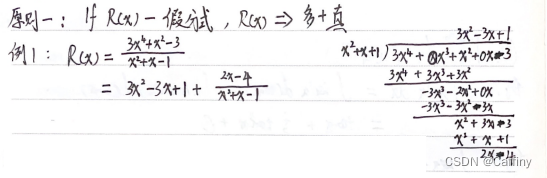 原则一：If R(x)-假分式，R(x)⇒多+真
例1：R(x)=(3x⁴+x²-3)/(x²+x-1)
=3x²-3x+1+(2x-4)/(x²+x-1)
3x²-3x+1
x²+x+1)3x⁴+0x³+x²+0x-3
3x⁴+3x³+3x²
-3x³-2x²+0x
-3x³-3x²-3x
x²+3x-3
x²+x+1
2x-4
CSDN @Caffiny